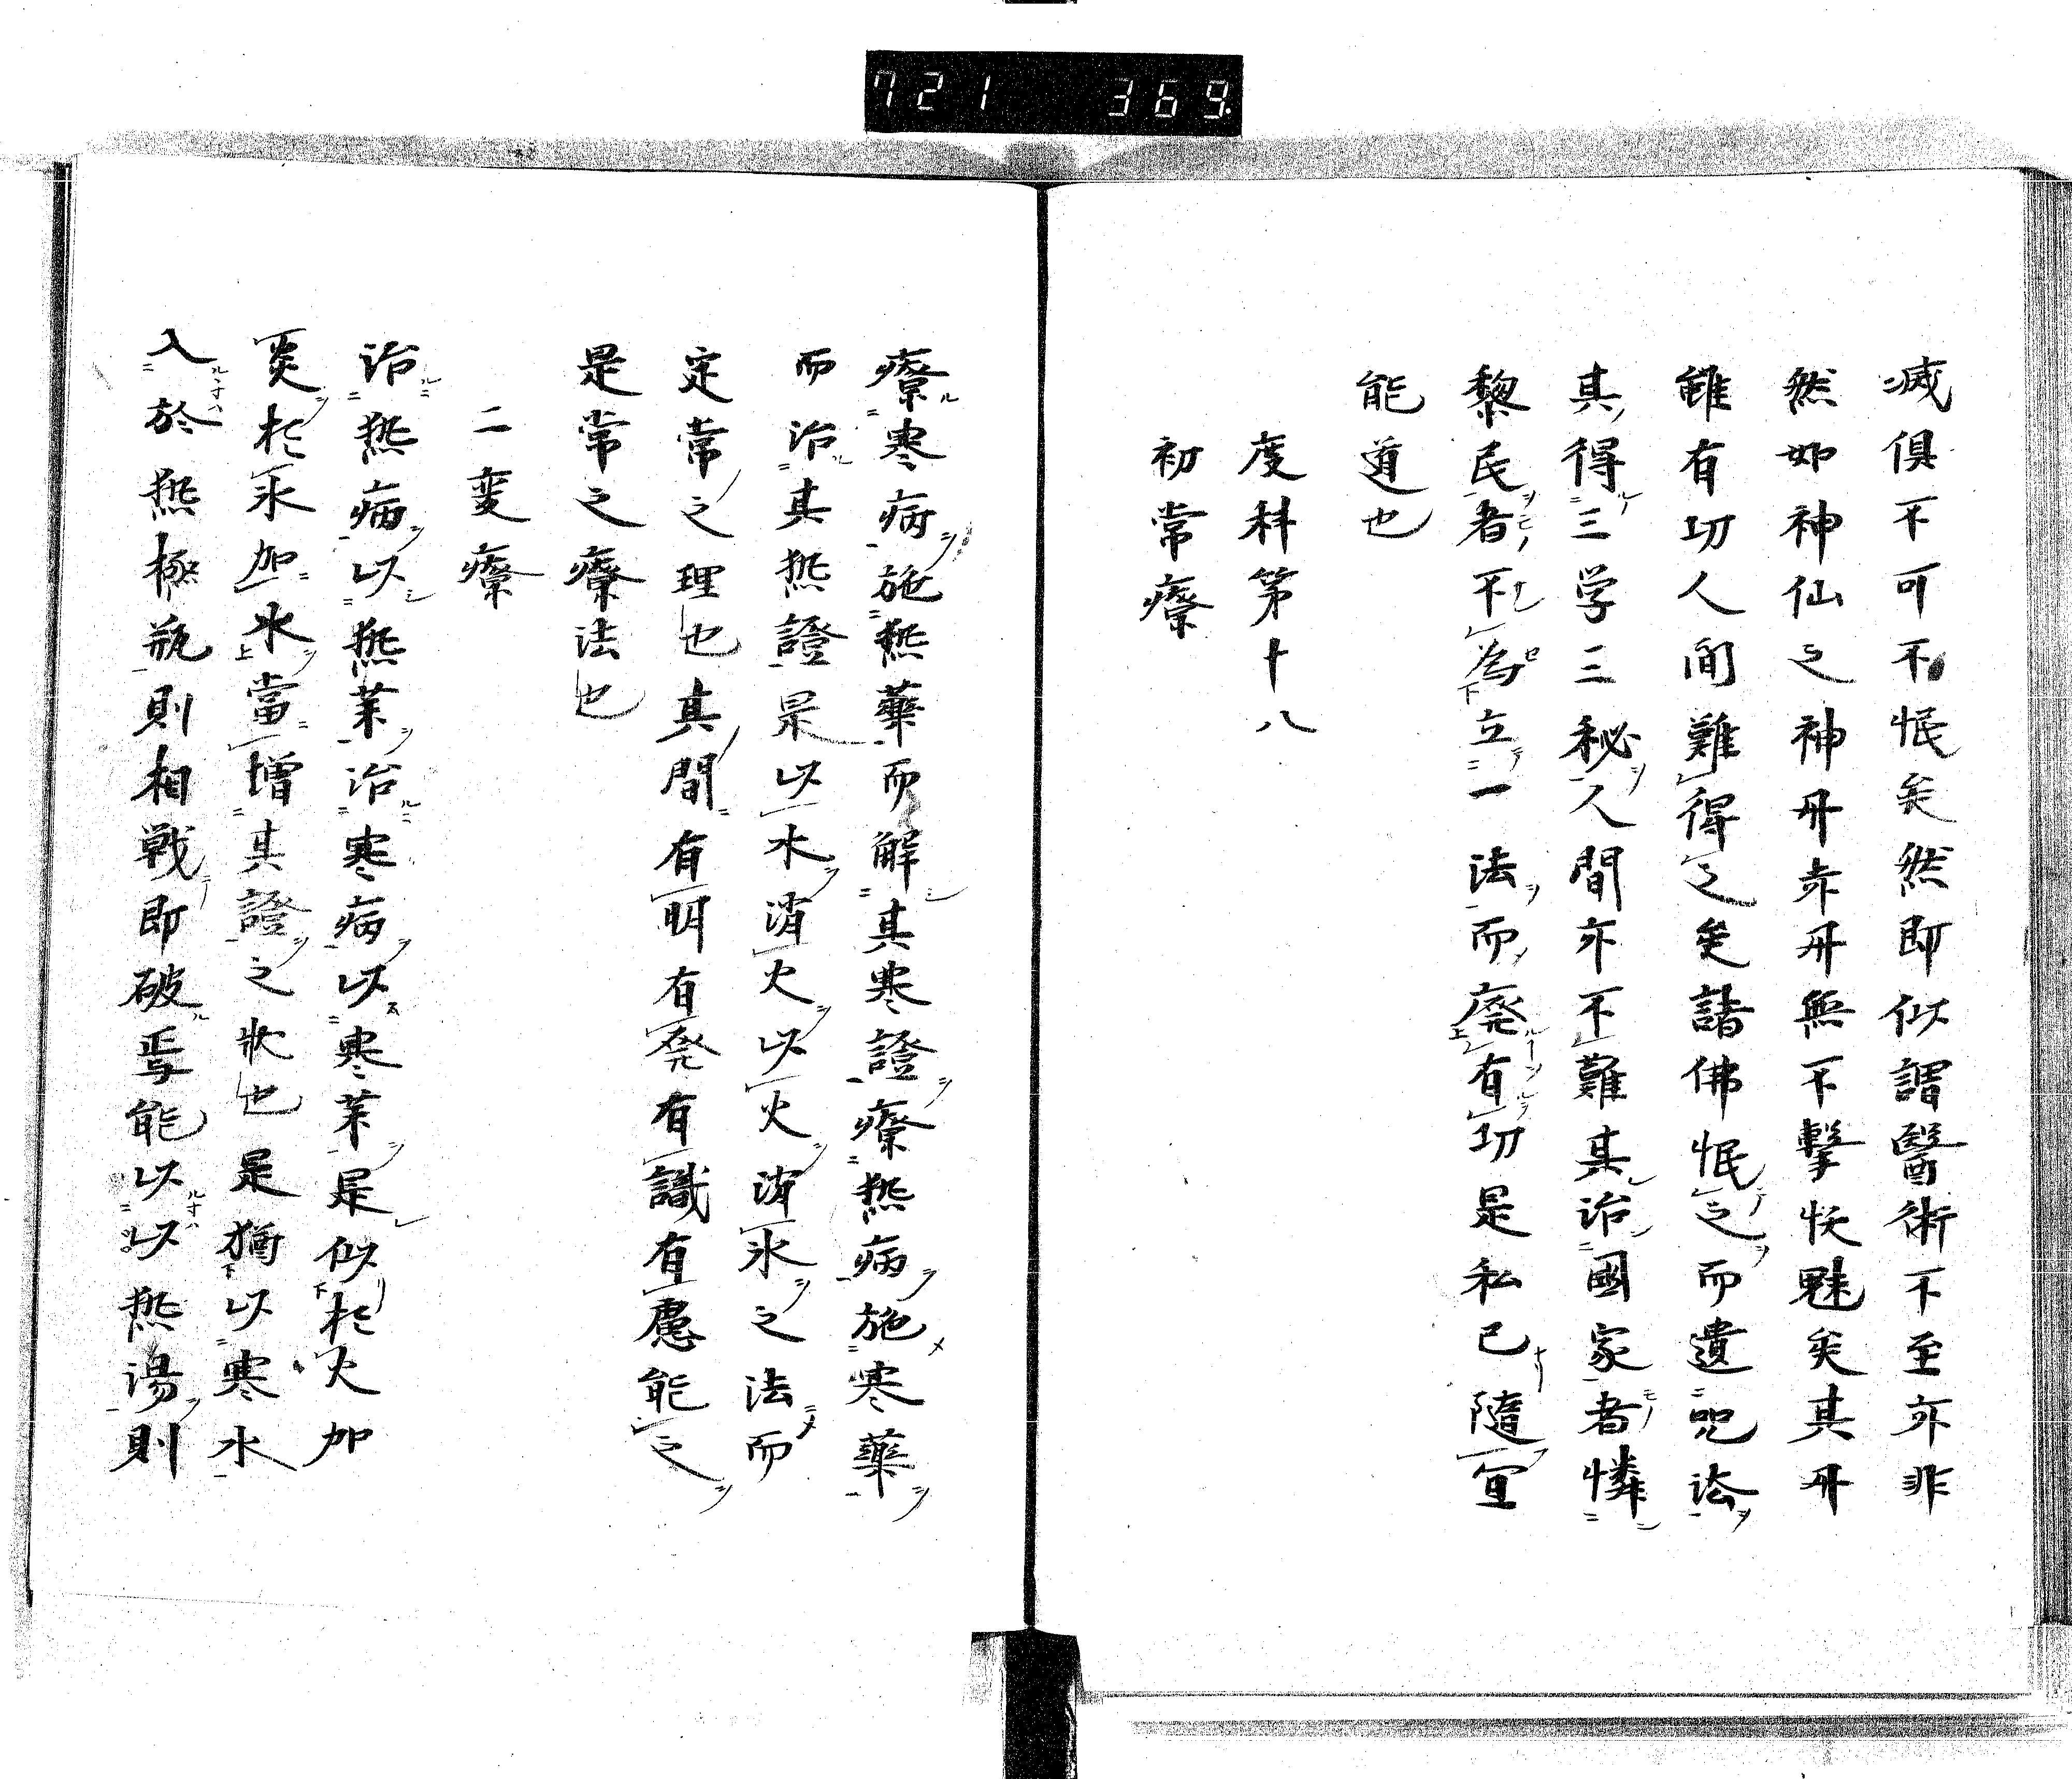 721 369
滅俱不可不恨矣然即似謂醫術不至亦非
然如神仙之神丹亦丹無不擊妖魅矣其丹
雖有功人間難得之矣諸佛恨之而遺咒法
其得三学三秘人間亦不難其治國家者憐
黎民者不為立一法而廃有功是私已隨宜
能道也
度科第十八
初常療
療寒病施熱藥而解其寒證療熱病施寒藥
而治其熱證是以水消火以火消氷之法而
定常之理也其間有明有発有識有慮能之
是常之療法也
二変療
治熱病以熱薬治寒病以寒薬是似於火加
炎於氷加水當增其證之狀也是猶以寒水
入於熱極瓶則相戦即破焉能以以熱湯則